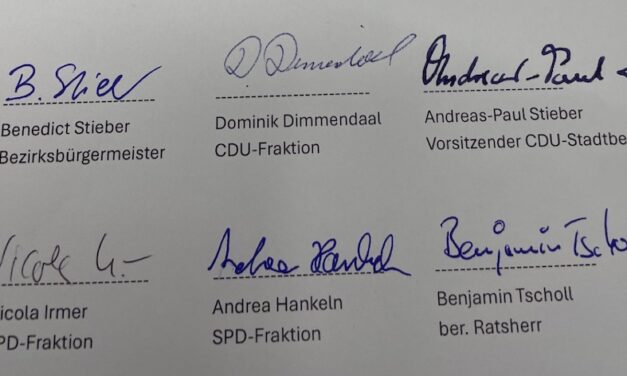 B. Stieber
D. Dimmendaal
Andreas-Paul
Benedict Stieber
Bezirksbürgermeister
Dominik Dimmendaal
CDU-Fraktion
Andreas-Paul Stieber
Vorsitzender CDU-Stadtbe
Nicola
Andrea Hankeln
Benjamin Tscho
icola Irmer
PD-Fraktion
Andrea Hankeln
SPD-Fraktion
Benjamin Tscholl
ber. Ratsherr